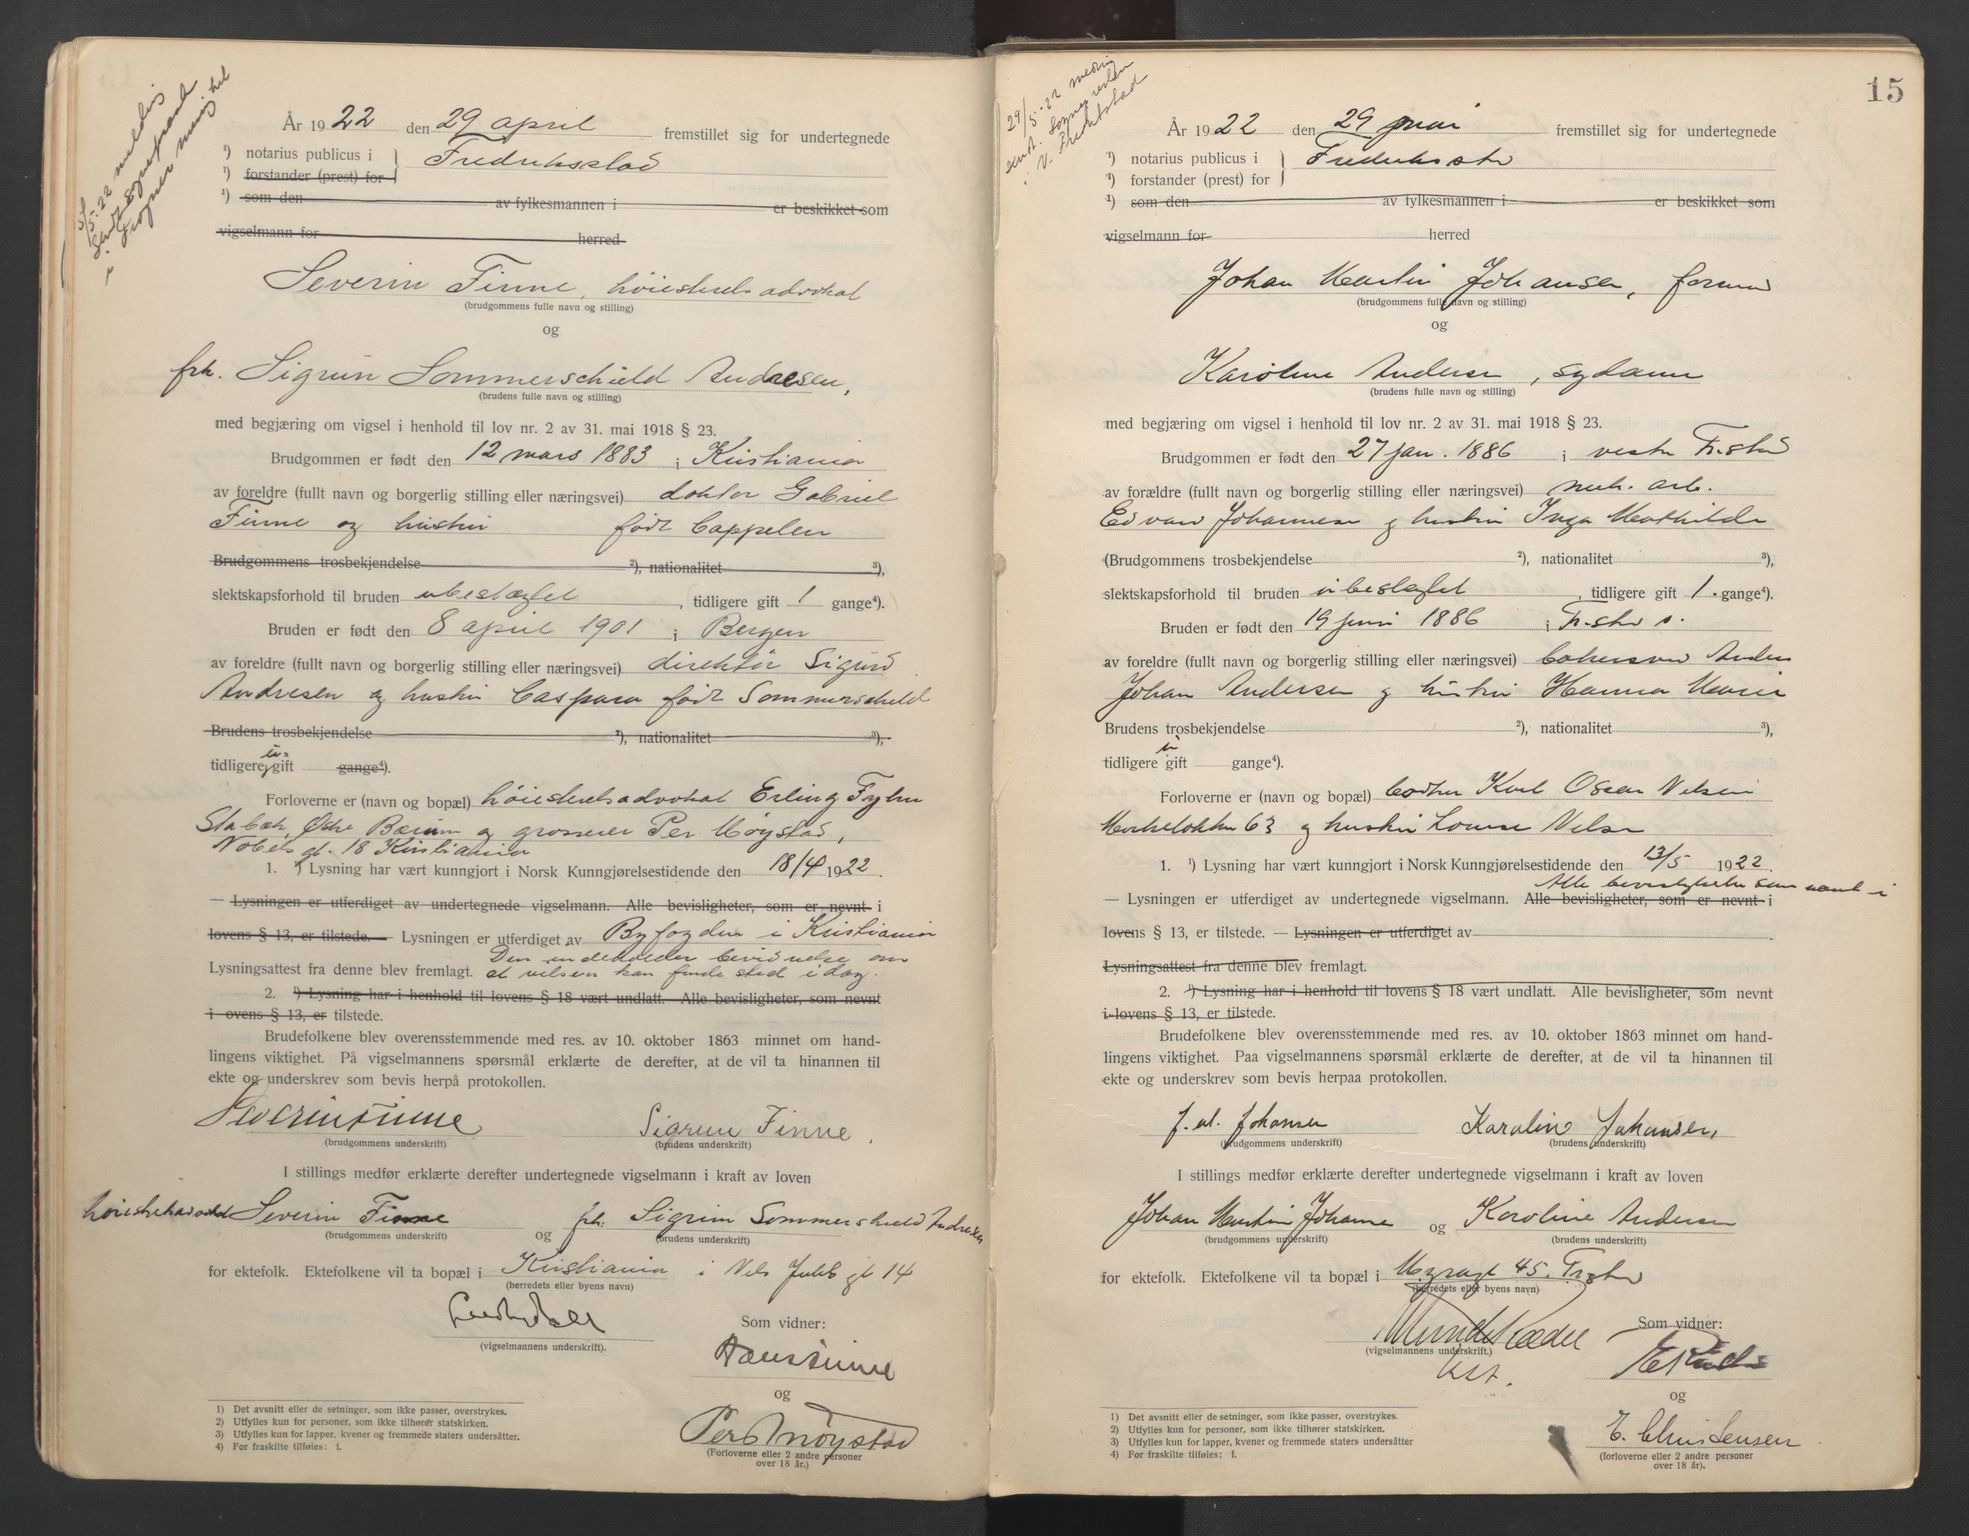 3/5-22 meldt
sendt Sogneprest
i Frogner menighet
År 1922 den 29 april fremstillet sig for undertegnede
¹) notarius publicus i } Fredriksstad
¹) forstander (prest) for
¹) som den av fylkesmannen i er beskikket som
vigselmann for herred
Severin Finne, høiesteretsadvokat
(brudgommens fulle navn og stilling)
og
frk. Sigrun Sommerschield Andresen,
(brudens fulle navn og stilling)
med begjæring om vigsel i henhold til lov nr. 2 av 31. mai 1918 § 23.
Brudgommen er født den 12 mars 1883 i Kristiania
av foreldre (fullt navn og borgerlig stilling eller næringsvei) doktor Gabriel
Finne og hustru født Cappelen
Brudgommens trosbekjendelse ²), nationalitet ³),
slektskapsforhold til bruden ubeslægtet, tidligere gift 1 gange⁴).
Bruden er født den 8 april 1901 i Bergen
av foreldre (fullt navn og borgerlig stilling eller næringsvei) direktør Sigurd
Andresen og hustru Caspara født Sommerschield
Brudens trosbekjendelse ²), nationalitet ³),
tidligere u-gift gange⁴).
Forloverne er (navn og bopæl) høiesteretsadvokat Erling
Stabæk, Østre Bærum og grosserer Per Møystad,
Nobels gt. 18 Kristiania
1. ¹) Lysning har vært kunngjort i Norsk Kunngjørelsestidende den 18/4 1922
— Lysningen er utferdiget av undertegnede vigselmann. Alle bevisligheter, som er nevnt i
lovens § 13, er tilstede. — Lysningen er utferdiget av Byfogden i Kristiania
Lysningsattest fra denne blev fremlagt. Den indeholder bevidnelse om
at vielsen kan finde sted idag.
2. ¹) Lysning har i henhold til lovens § 18 vært undlatt. Alle bevisligheter, som nevnt
i ovens § 13, er tilstede.
Brudefolkene blev overensstemmende med res. av 10. oktober 1863 minnet om hand-
lingens viktighet. På vigselmannens spørsmål erklærte de derefter, at de vil ta hinannen til
ekte og underskrev som bevis herpå protokollen.
Severin Finne Sigrun Finne.
(brudgommens underskrift) (brudens underskrift)
I stillings medfør erklærte derefter undertegnede vigselmann i kraft av loven
Severin Finne og frk. Sigrun Sommerschield Andresen
(brudgommens underskrift) (brudens underskrift)
for ektefolk. Ektefolkene vil ta bopæl i Kristiania i Nels Juels gt 14
(herredets eller byens navn)
(vigselmannens underskrift).
Som vidner:
Hans Finne
og
Per Møystad
(Forloverne eller 2 andre personer
over 18 år.)
1) Det avsnitt eller de setninger, som ikke passer, overstrykes.
2) Utfylles kun for personer, som ikke tilhører statskirken.
3) Utfylles kun for lapper, kvener og fremmede staters undersåtter.
4) For fraskilte tilføies: f.
15
29/5-22 meddelt
sendt. Sognepresten
i V. Fredrikstad
År 1922 den 29 mai fremstillet sig for undertegnede
¹) notarius publicus i } Fredriksstd
¹) forstander (prest) for
¹) som den av fylkesmannen i er beskikket som
vigselmann for herred
Johan Martin Johansen, formand
(brudgommens fulle navn og stilling)
og
Karoline Andersen, sydame
(brudens fulle navn og stilling)
med begjæring om vigsel i henhold til lov nr. 2 av 31. mai 1918 § 23.
Brudgommen er født den 27 jan. 1886 i vestre Fr.stad
av forældre (fullt navn og borgerlig stilling eller næringsvei) mek. arb.
Edvard Johannesen og hustru Inga Mathilde
(Brudgommens trosbekjendelse ²), nationalitet ³),
slektskapsforhold til bruden ubeslægtet, tidligere gift 1. gange⁴).
Bruden er født den 19 juni 1886 i Fr.stad s.
av foreldre (fullt navn og borgerlig stilling eller næringsvei) Anders
Johan Andersen og hustru Hanna Marie
Brudens trosbekjendelse ²), nationalitet ³),
tidligere u gift gange⁴).
Forloverne er (navn og bopæl) Karl Oscar Nilsen
63 og hustru Lovise Nilsen
1. ¹) Lysning har vært kunngjort i Norsk Kunngjørelsestidende den 13/5 1922.
Alle bevisligheter som nevnt i
— Lysningen er utferdiget av undertegnede vigselmann. Alle bevisligheter, som er nevnt i
lovens § 13, er tilstede. — Lysningen er utferdiget av
Lysningsattest fra denne blev fremlagt.
2. ¹) Lysning har i henhold til lovens § 18 vært undlatt. Alle bevisligheter, som nevnt
i lovens § 13, er tilstede.
Brudefolkene blev overensstemmende med res. av 10. oktober 1863 minnet om hand-
lingens viktighet. Paa vigselmannens spørsmål erklærte de derefter, at de vil ta hinannen til
ekte og underskrev som bevis herpaa protokollen.
J. M. Johansen Karoline Johansen,
(brudgommens underskrift) (brudens underskrift)
I stillings medfør erklærte derefter undertegnede vigselmann i kraft av loven
Johan Martin Johansen og Karoline Andersen
(brudgommens underskrift) (brudens underskrift)
for ektefolk. Ektefolkene vil ta bopæl i 45.
(herredets eller byens navn)
(vigselmannens underskrift.)
Som vidner:
og
E. Christensen
(forloverne eller 2 andre personer
over 18 år).
1) Det avsnitt eller de setninger, som ikke passer, overstrykes.
2) Utfylles kun for personer, som ikke tilhører statskirken.
3) Utfylles kun for lapper, kvener og fremmede staters undersåtter
4) For fraskilte tilføies: f.